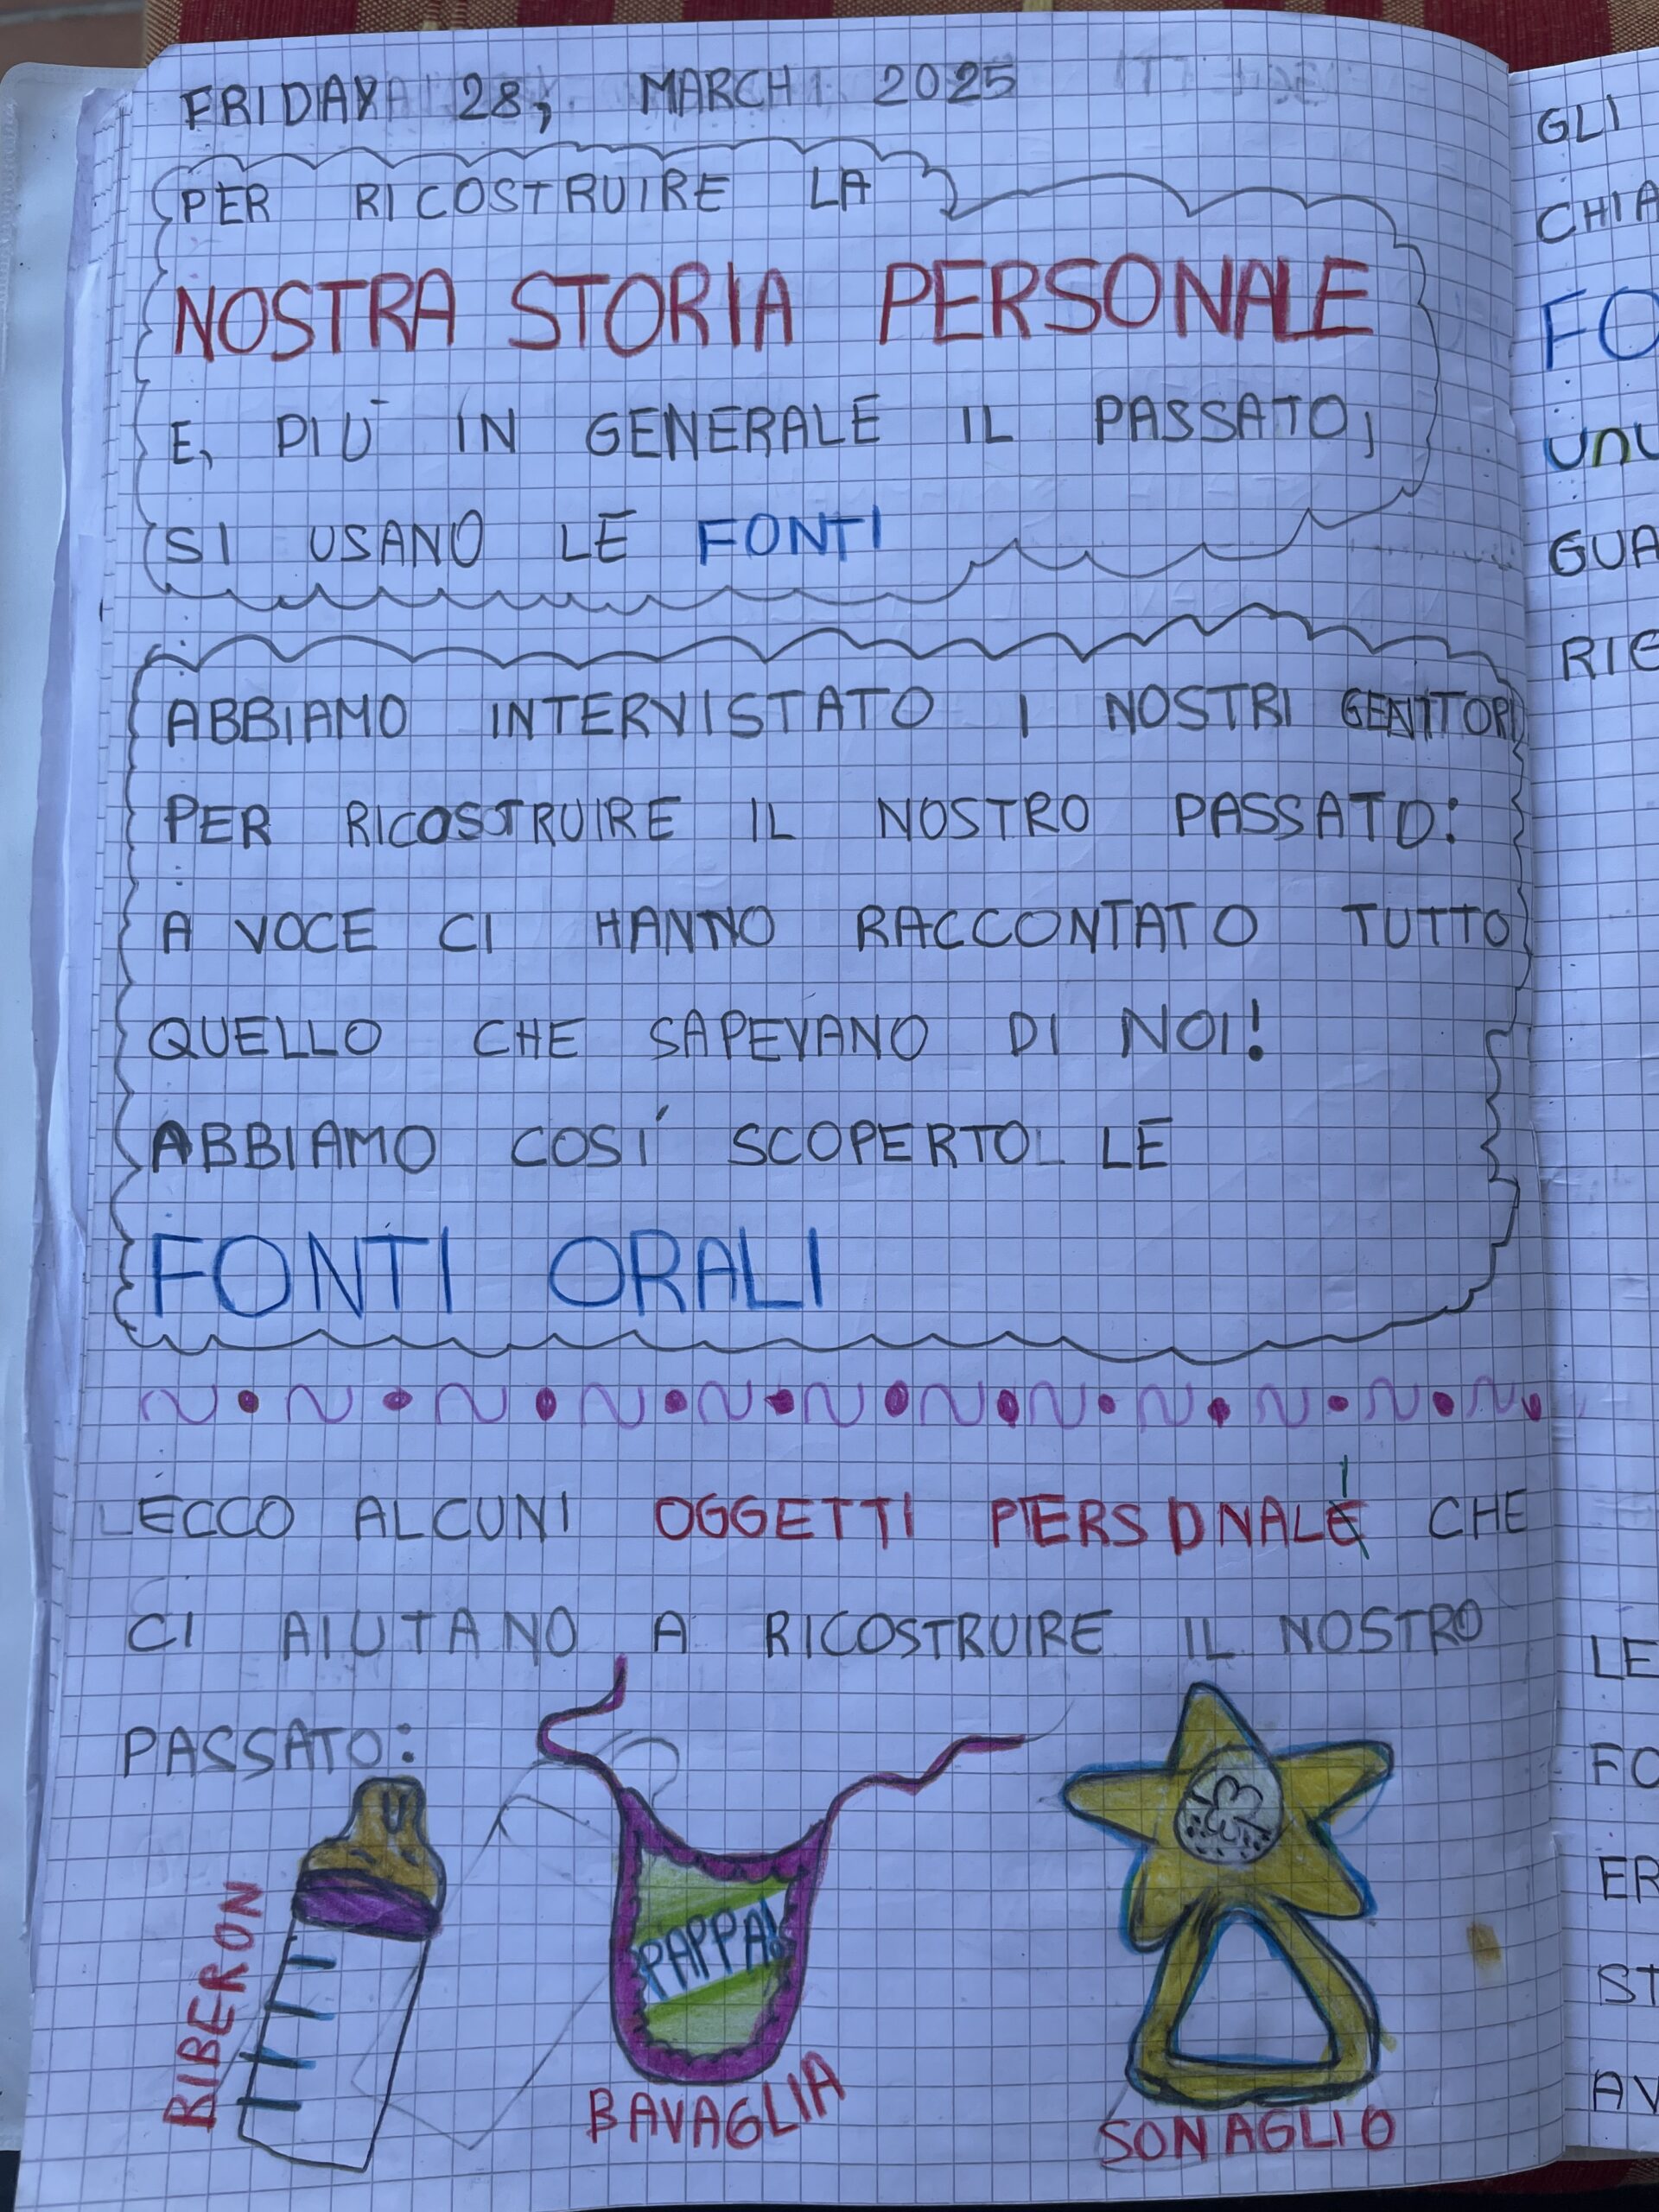 FRIDAY 28, MARCH 2025
PER RICOSTRUIRE LA
NOSTRA STORIA PERSONALE
E, PIÙ IN GENERALE IL PASSATO,
SI USANO LE FONTI
ABBIAMO INTERVISTATO I NOSTRI GENITORI
PER RICOSTRUIRE IL NOSTRO PASSATO:
A VOCE CI HANNO RACCONTATO TUTTO
QUELLO CHE SAPEVANO DI NOI!
ABBIAMO COSÍ SCOPERTO LE
FONTI ORALI
ECCO ALCUNI OGGETTI PERSONALI CHE
CI AIUTANO A RICOSTRUIRE IL NOSTRO
PASSATO:
PAPPA!
BIBERON
BAVAGLIA
SONAGLIO
GLI